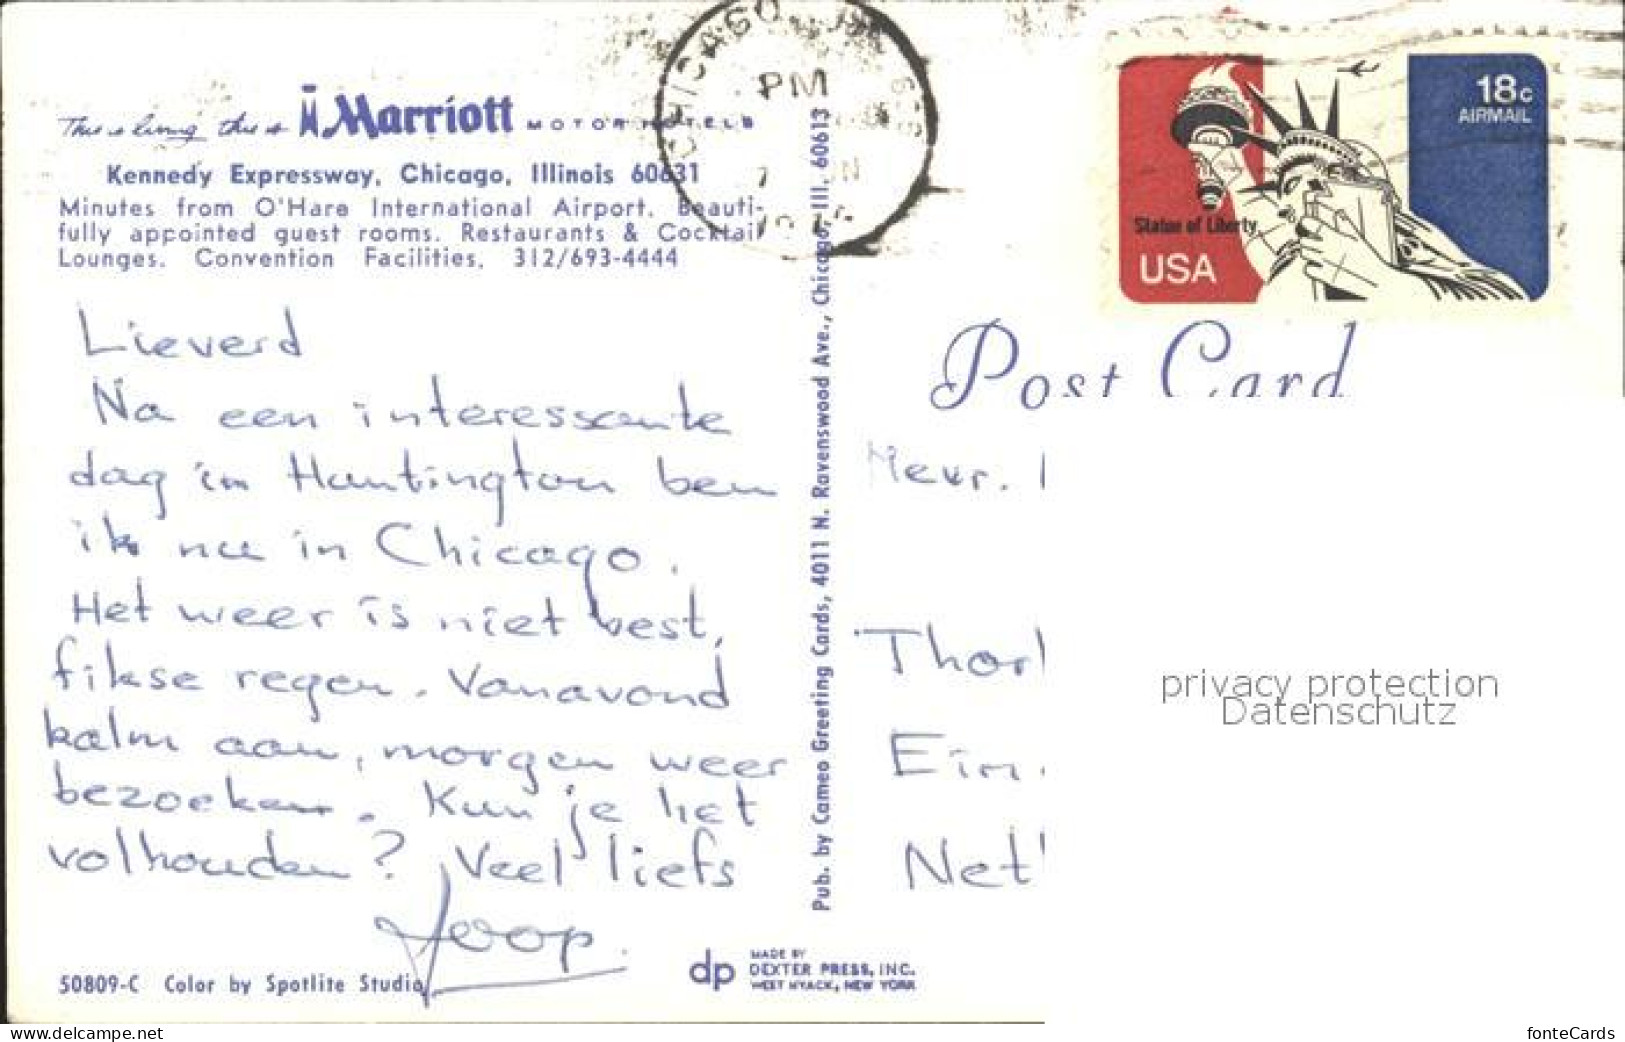 This is living this is Marriott MOTOR HOTELS
Kennedy Expressway, Chicago, Illinois 60631
Minutes from O'Hare International Airport. Beauti-
fully appointed guest rooms. Restaurants & Cocktail
Lounges. Convention Facilities, 312/693-4444
Lieverd
Na een interessante
dag in Huntington ben
ik nu in Chicago.
Het weer is niet best,
fikse regen. Vanavond
kalm aan, morgen weer
bezoeken. Kun je het
volhouden? Veel liefs
Joop.
50809-C Color by Spotlite Studio
Pub. by Cameo Greeting Cards, 4011 N. Ravenswood Ave., Chicago, Ill. 60613
dp MADE BY
DEXTER PRESS, INC.
WEST NYACK, NEW YORK
CHICAGO
PM
18c
AIRMAIL
Statue of Liberty
USA
Post Card
Mevr.
privacy protection
Datenschutz
www.delcampe.net
fonteCards